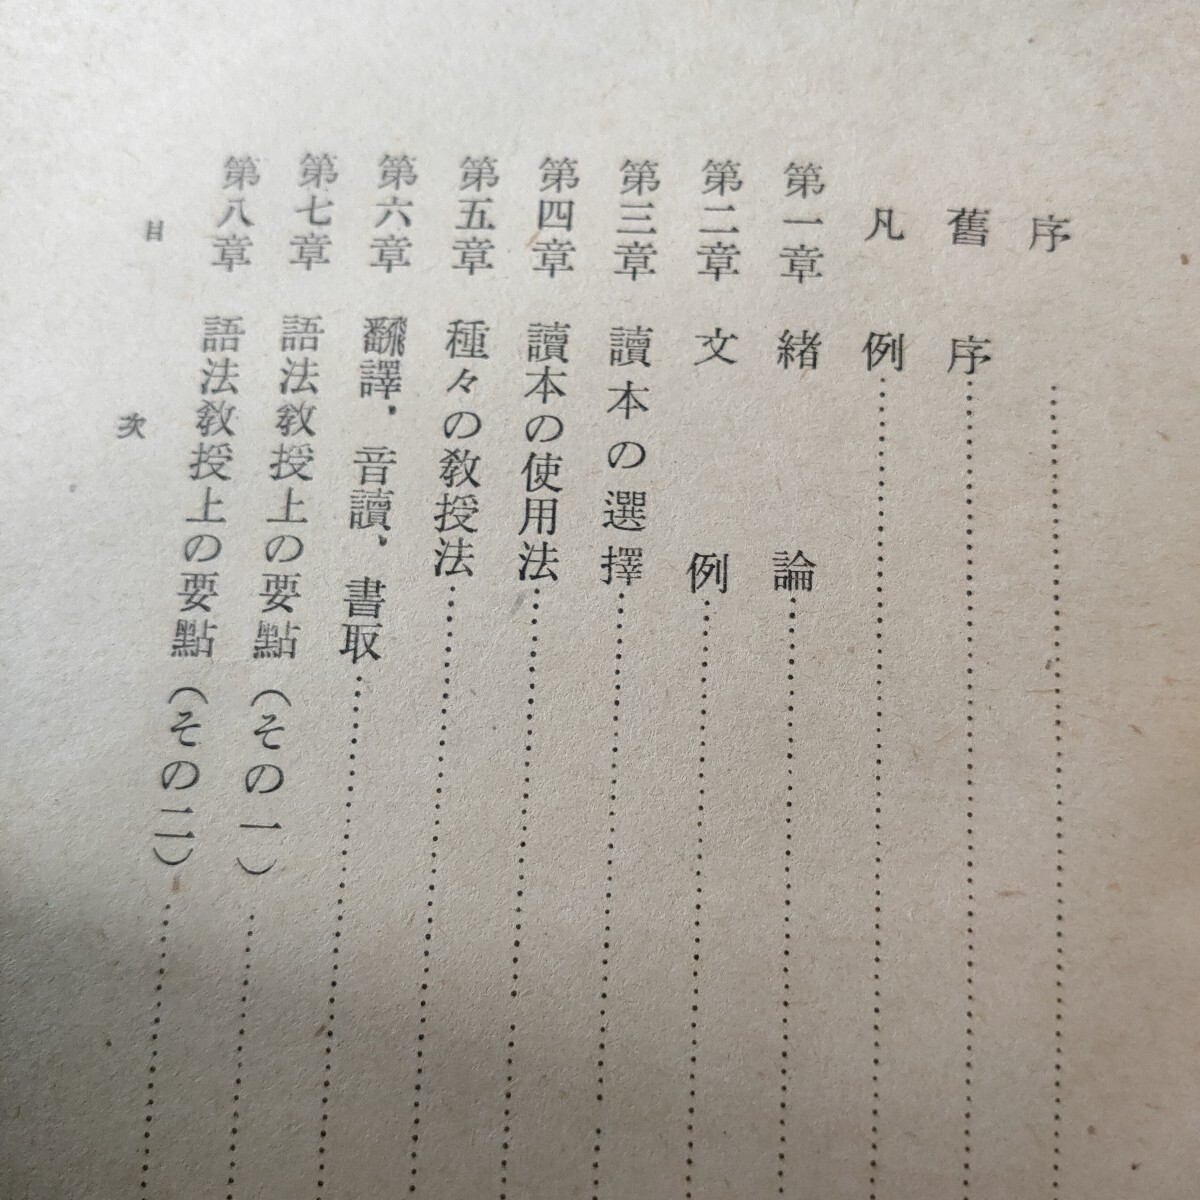 序
舊序
凡例
第一章 緒論
第二章 文例
第三章 讀本の選擇
第四章 讀本の使用法
第五章 種々の敎授法
第六章 飜譯，音讀，書取
第七章 語法敎授上の要點（その一）
第八章 語法敎授上の要點（その二）
目次